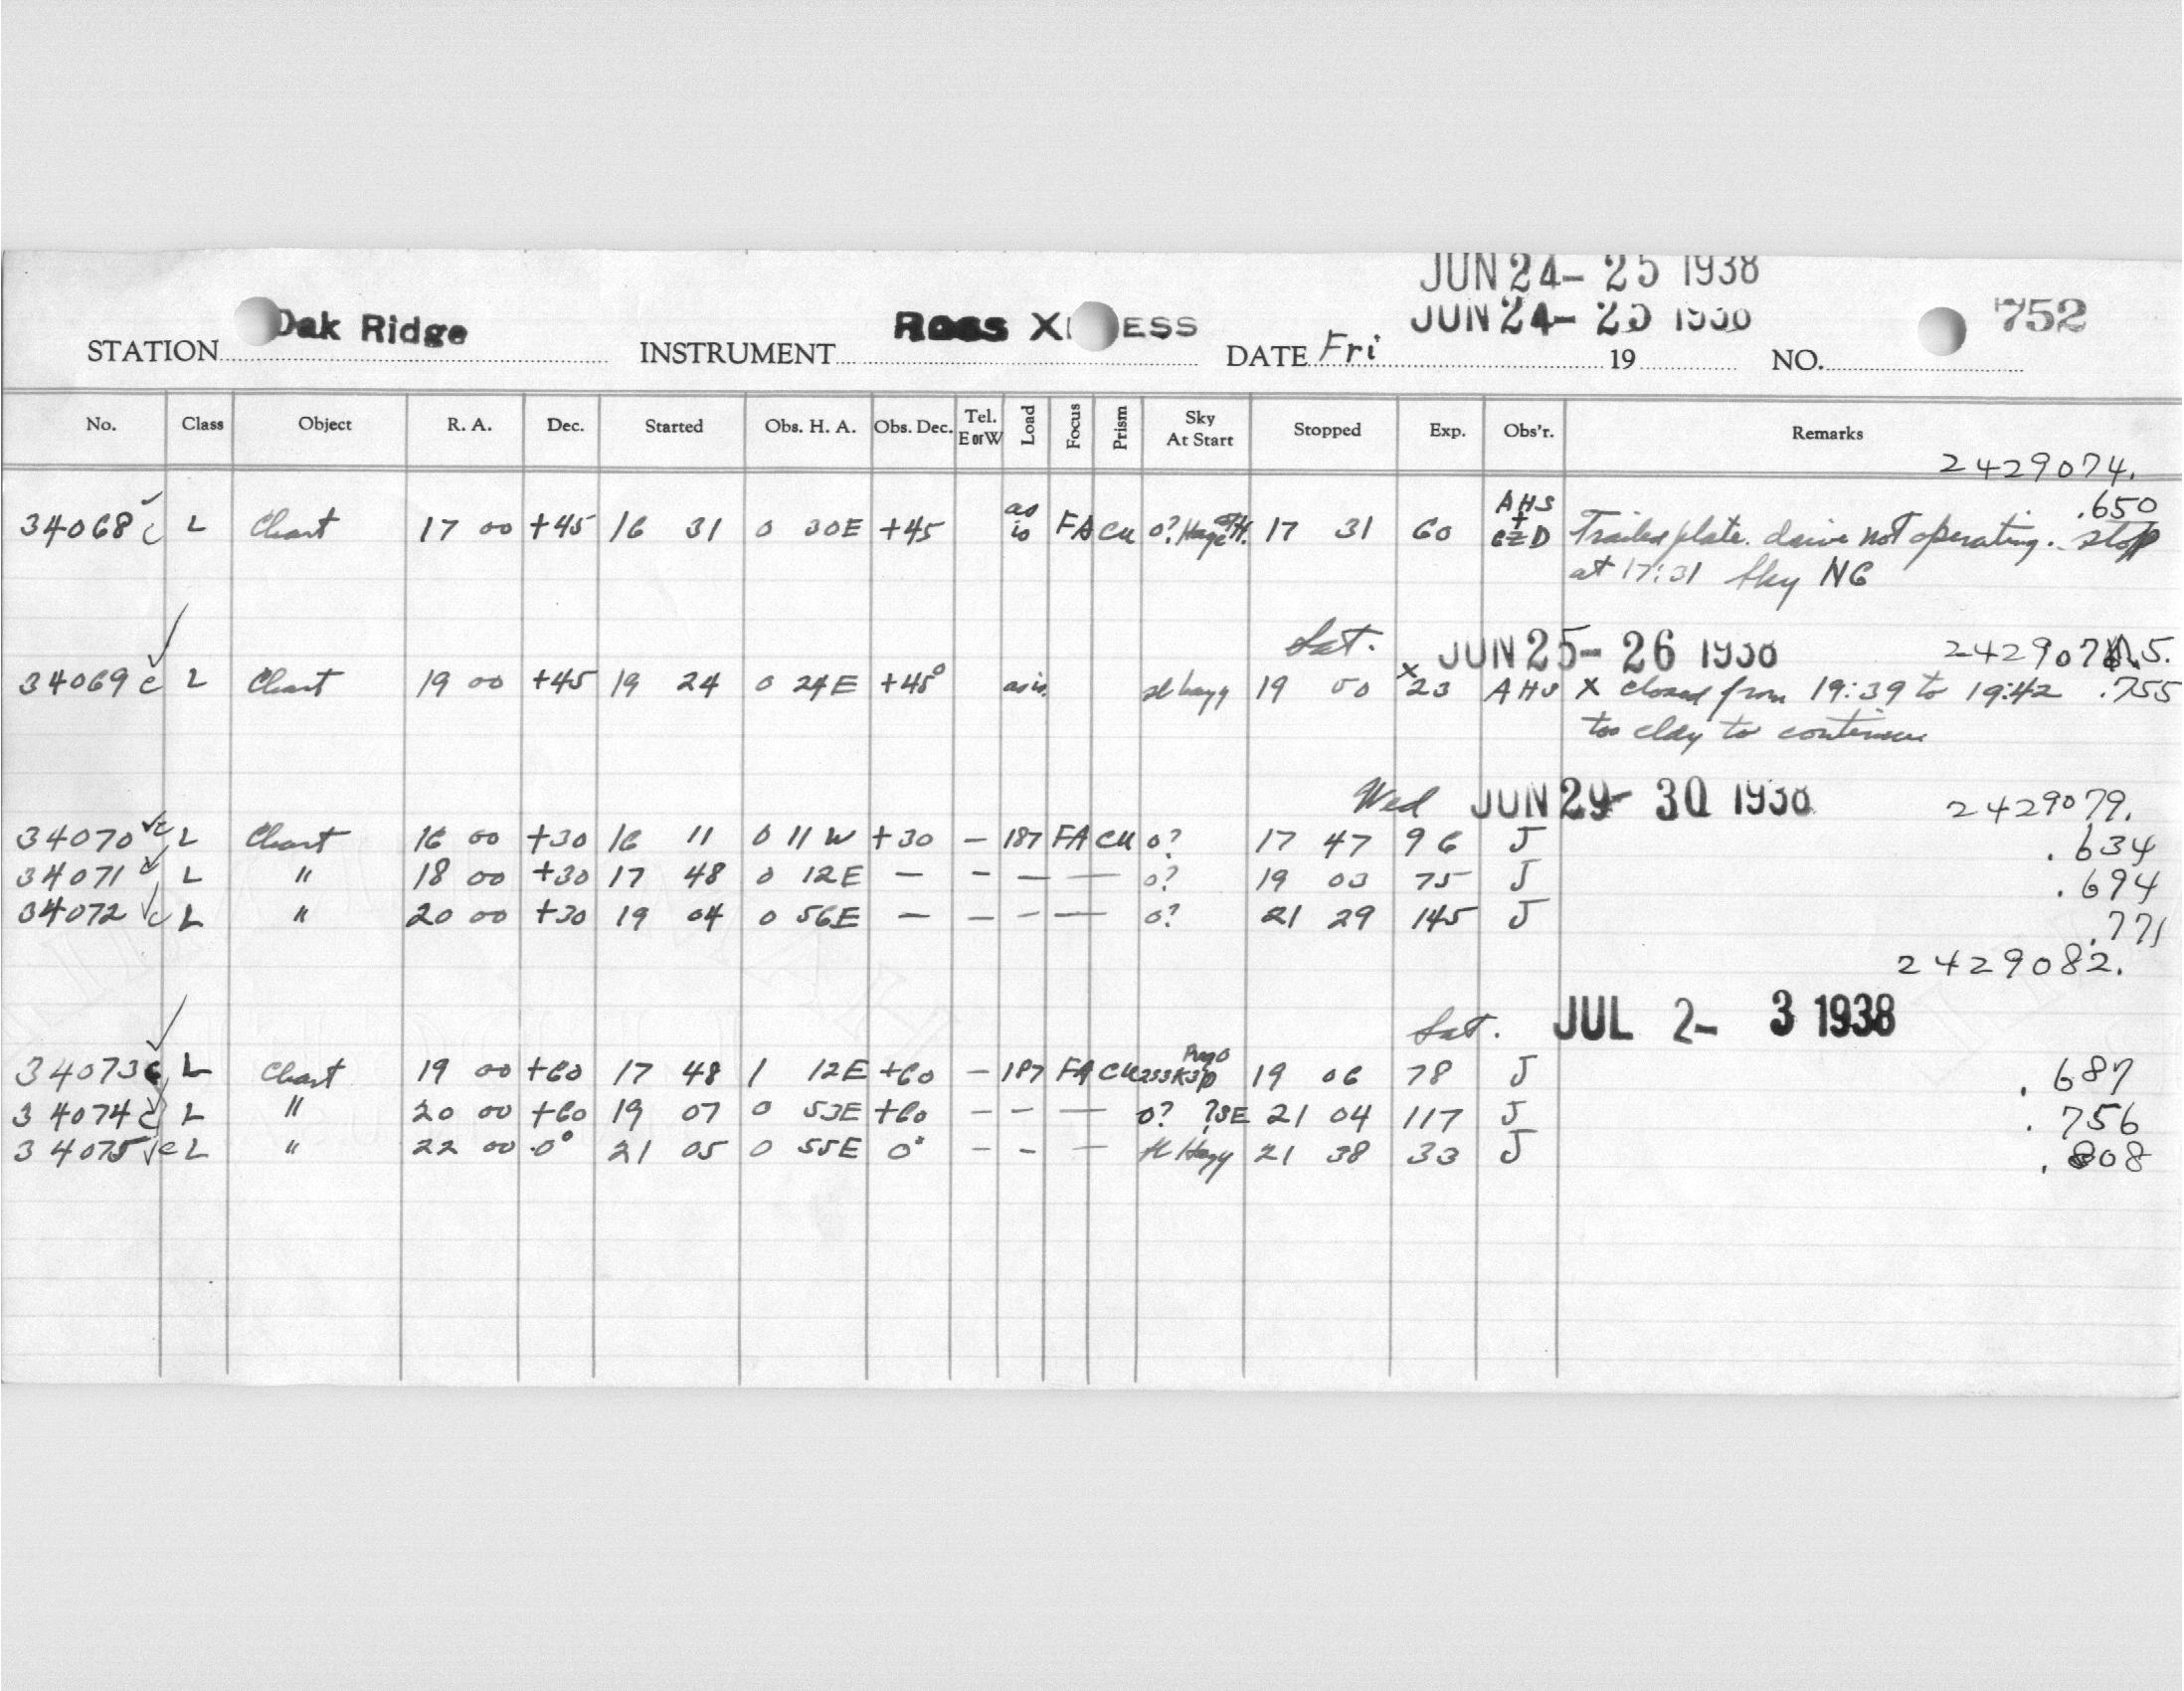 JUN 24- 25 1938
JUN 24- 25 1938
STATION Oak Ridge INSTRUMENT Ross X ESS DATE Fri 19 NO. 752
No. Class Object R. A. Dec. Started Obs. H. A. Obs. Dec. Tel. E or W Load Focus Prism Sky At Start Stopped Exp. Obs'r. Remarks
2429074.
34068 c L Chart 17 00 +45 16 31 0 30E +45 as is FA CU 0? 17 31 60 AHS + Trailed plate. drive not operating. stop .650
at 17:31 Sky NG
Sat. JUN 25- 26 1938 2429075.
34069 c L Chart 19 00 +45 19 24 0 24E +45° as is 19 50 x23 AHS X closed from 19:39 to 19:42 .755
too cldy to continue
Wed JUN 29- 30 1938 2429079.
34070 c L Chart 16 00 +30 16 11 0 11 W +30 — 187 FA CU 0? 17 47 96 J .634
34071 L " 18 00 +30 17 48 0 12E — — — — 0? 19 03 75 J .694
34072 c L " 20 00 +30 19 04 0 56E — — — — 0? 21 29 145 J .771
2429082.
Sat. JUL 2- 3 1938
34073 c L Chart 19 00 +60 17 48 1 12E +60 — 187 FA CU 19 06 78 J .687
34074 c L " 20 00 +60 19 07 0 53E +60 — — — 0? ?SE 21 04 117 J .756
34075 c L " 22 00 0° 21 05 0 55E 0° — — — 21 38 33 J .808